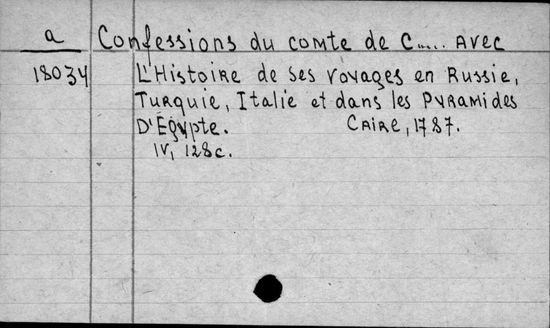 a Confessions du comte de C..... avec
18034 L'Histoire de ses voyages en Russie,
Turquie, Italie et dans les Pyramides
D'Égypte. Caire, 1787.
IV, 128c.